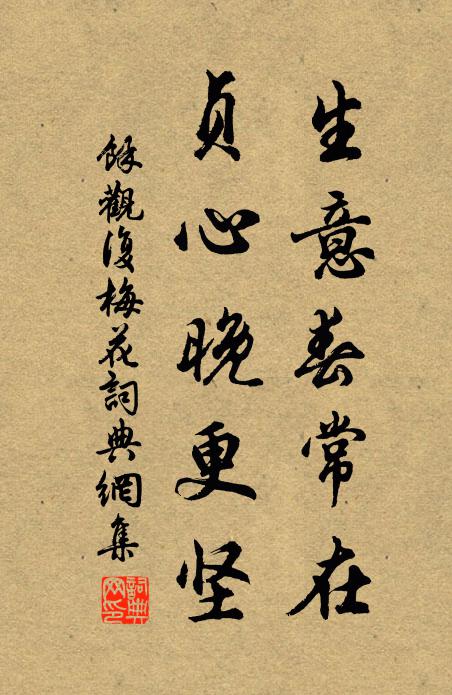 生意春常在
貞心晚更坚
餘觀復梅花詞典網集
詞典網印